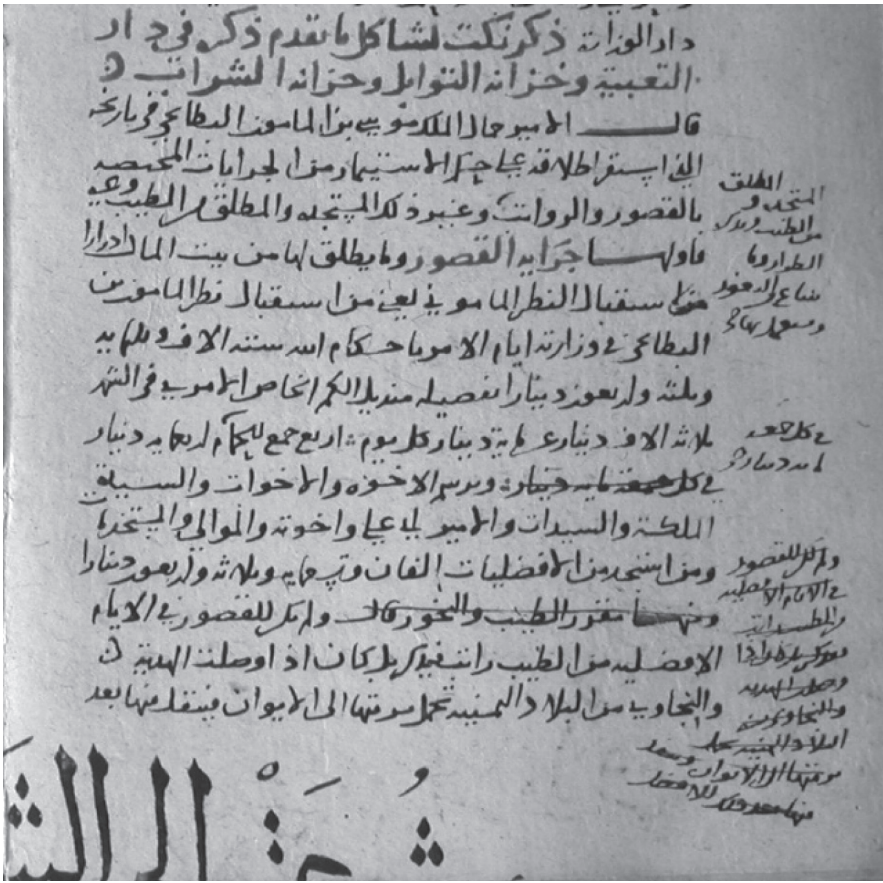 دار الوزارة ذكر نكت تشاكل ما تقدم ذكره في دار
التعبية وخزانة التوابل وخزانة الشراب
قال الامير جمال الملك موسى بن المامون البطائحي في تاريخه
الذي استقر اطلاقه على حكم الاستيمار من الجرايات المختصة
بالقصور والرواتب وغير ذلك المستجده والمطلق من الطيب
فاولها جراية القصور وما يطلق لها من بيت المال ادرارا
من استقبال النظر الماموني يعني من استقبال نظر المامون بن
البطائحي في وزارته ايام الامر باحكام الله ستة الاف وثلثمايه
وثلثه واربعون دينارا تفصيله منديل الكم الخاص الامري في الشهر
ثلاثة الاف دينار عن ماية دينار كل يوم اربع جمع الحمام اربعمايه دينار
في كل جمعة مايه دينار وبرسم الاخوة والاخوات والسيدة
الملكة والسيدات والامير ابي علي واخوته والموالي والمستخدمات
ومن استجد من الافضليات الفان وتسعمايه وثلاثة واربعون دينارا
ومنها مقرر الطيب والبخور قال ولم يكن للقصور في الايام
الافضليه من الطيب راتب فيذكر بل كان اذا وصلت الهدية
والتجاوي من البلاد اليمنيه تحمل برمتها الى الايوان فينقل منها بعد
المطلق
المستجده و
من الطيب وتذكر
الطراز وما
يبتاع من الثغور
ويستعمل بها
في كل جمعه
مايه دينار
ولم يكن للقصور
في الايام الافضليه
من الطيب راتب
فيذكر بل كان اذا
وصلت الهديه
والتجاوي من
البلاد اليمنيه تحمل
برمتها الى الايوان وينقل
منها بعد ذلك للافضل